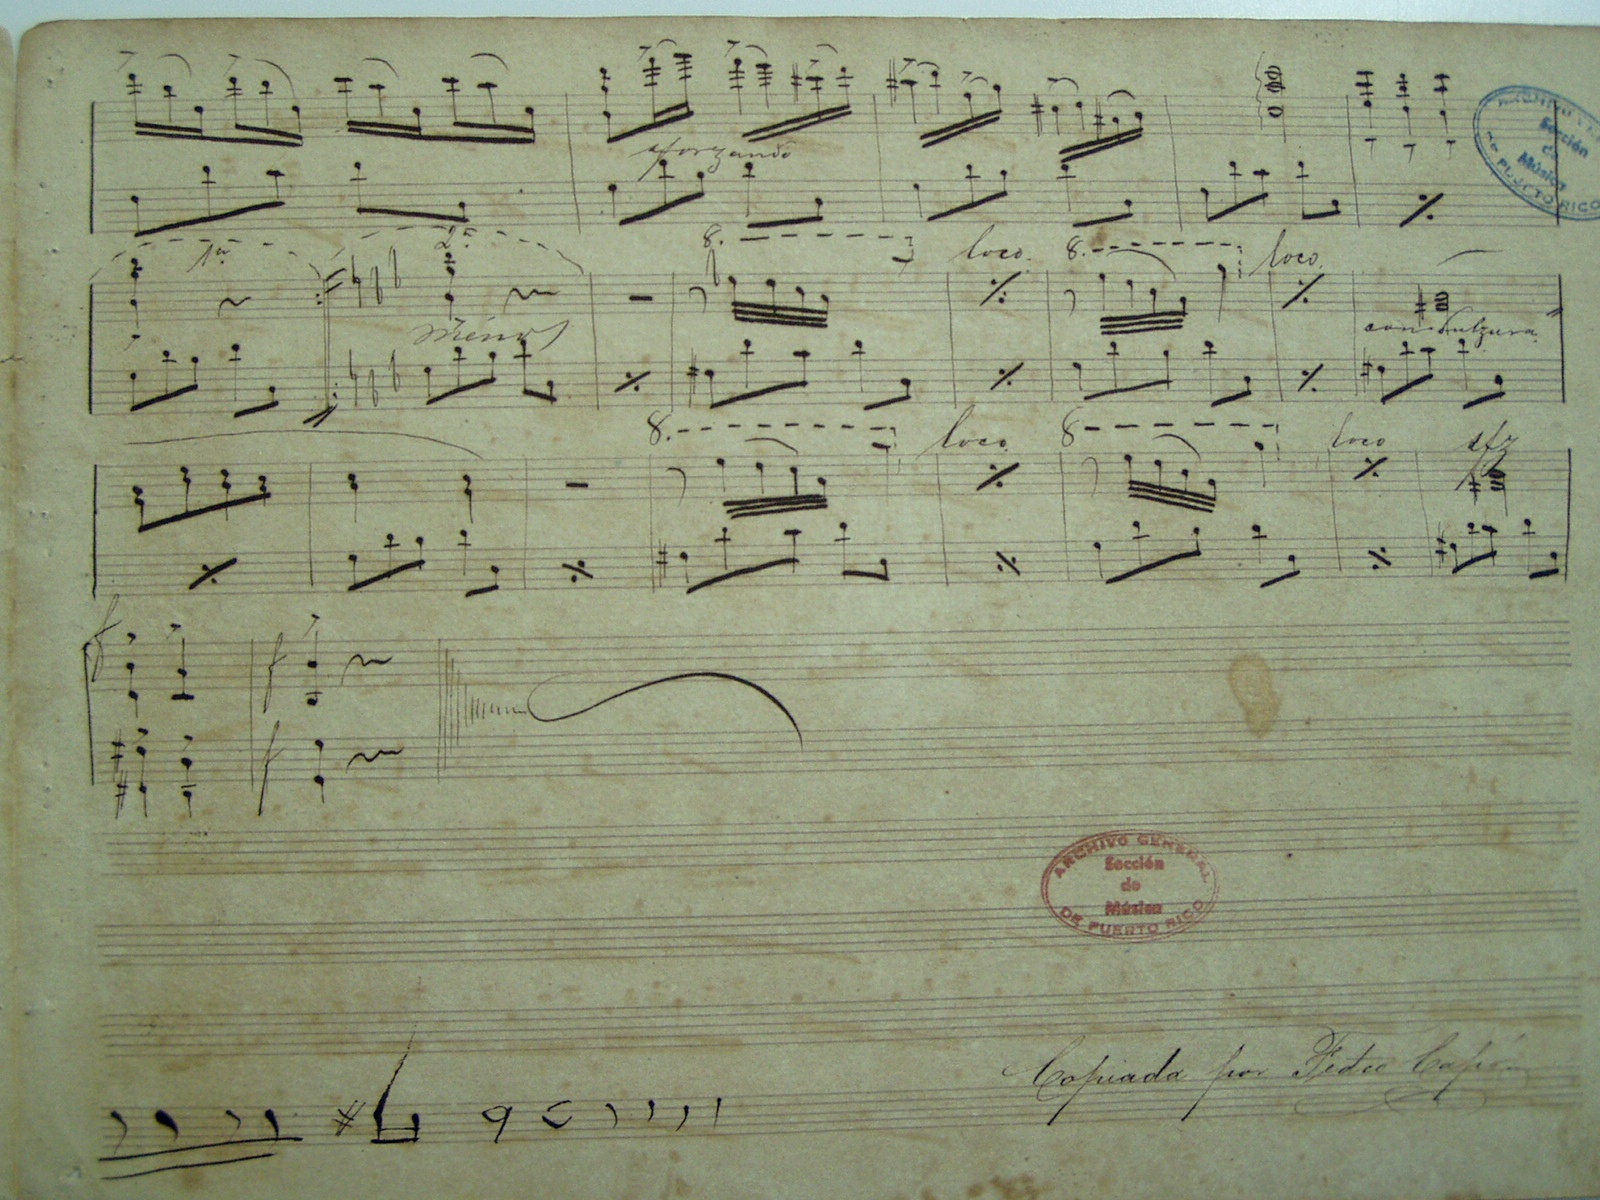 sforzando
ARCHIVO
Sección
de
Música
DE PUERTO RICO
1ª 2ª 8. loco. 8. loco.
menos
con dulzura
8. loco 8 loco sfz
f f
f
ARCHIVO GENERAL
Sección
de
Música
DE PUERTO RICO
Copiada por